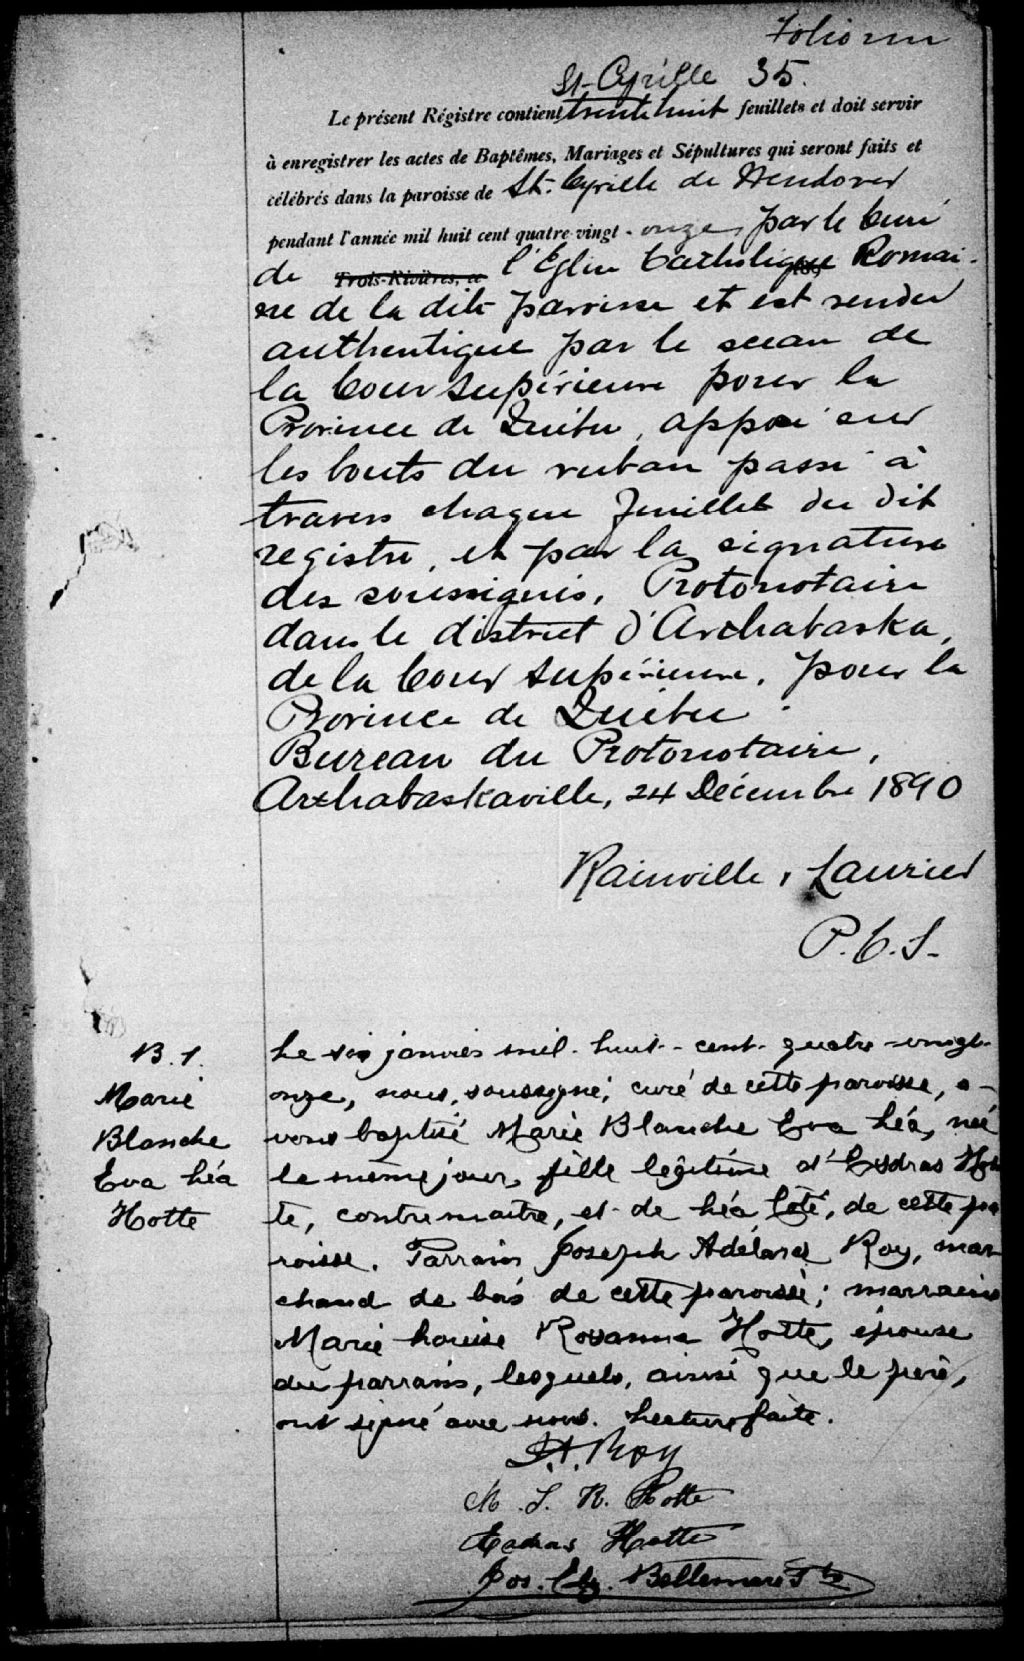 Folio un
St-Cyrille 35.
Le présent Régistre contient trente huit feuillets et doit servir
à enregistrer les actes de Baptêmes, Mariages et Sépultures qui seront faits et
célébrés dans la paroisse de St. Cyrille de Wendover
pendant l'année mil huit cent quatre-vingt-onze, par le Curé
de Trois-Rivières, ce l'Eglise Catholique Romai-
ne de la dite paroisse et est rendu
authentique par le sceau de
la Cour Supérieure pour la
Province de Québec, apposé sur
les bouts du ruban passé à
travers chaque feuillet du dit
registre, et par la signature
des soussignés, Protonotaire
dans le district d'Arthabaska,
de la Cour Supérieure, pour la
Province de Québec.
Bureau du Protonotaire,
Arthabaskaville, 24 Décembre 1890
Rainville & Laurier
P.C.S.
B. 1.
Marie
Blanche
Eva Léa
Hotte
Le six janvier mil-huit-cent-quatre-vingt-
onze, nous, soussigné, curé de cette paroisse, a-
vons baptisé Marie Blanche Eva Léa, née
le même jour, fille légitime d'Esdras Hot
te, contremaître, et de Léa Côté, de cette pa
roisse. Parrain Joseph Adélard Roy, mar
chand de bois de cette paroisse; marraine
Marie Louise Rosanna Hotte, épouse
du parrain, lesquels, ainsi que le père,
ont signé avec nous. Lecture faite.
J.A. Roy
M. L. R. Hotte
Esdras Hotte
Jos. Elz. Bellemare Ptre